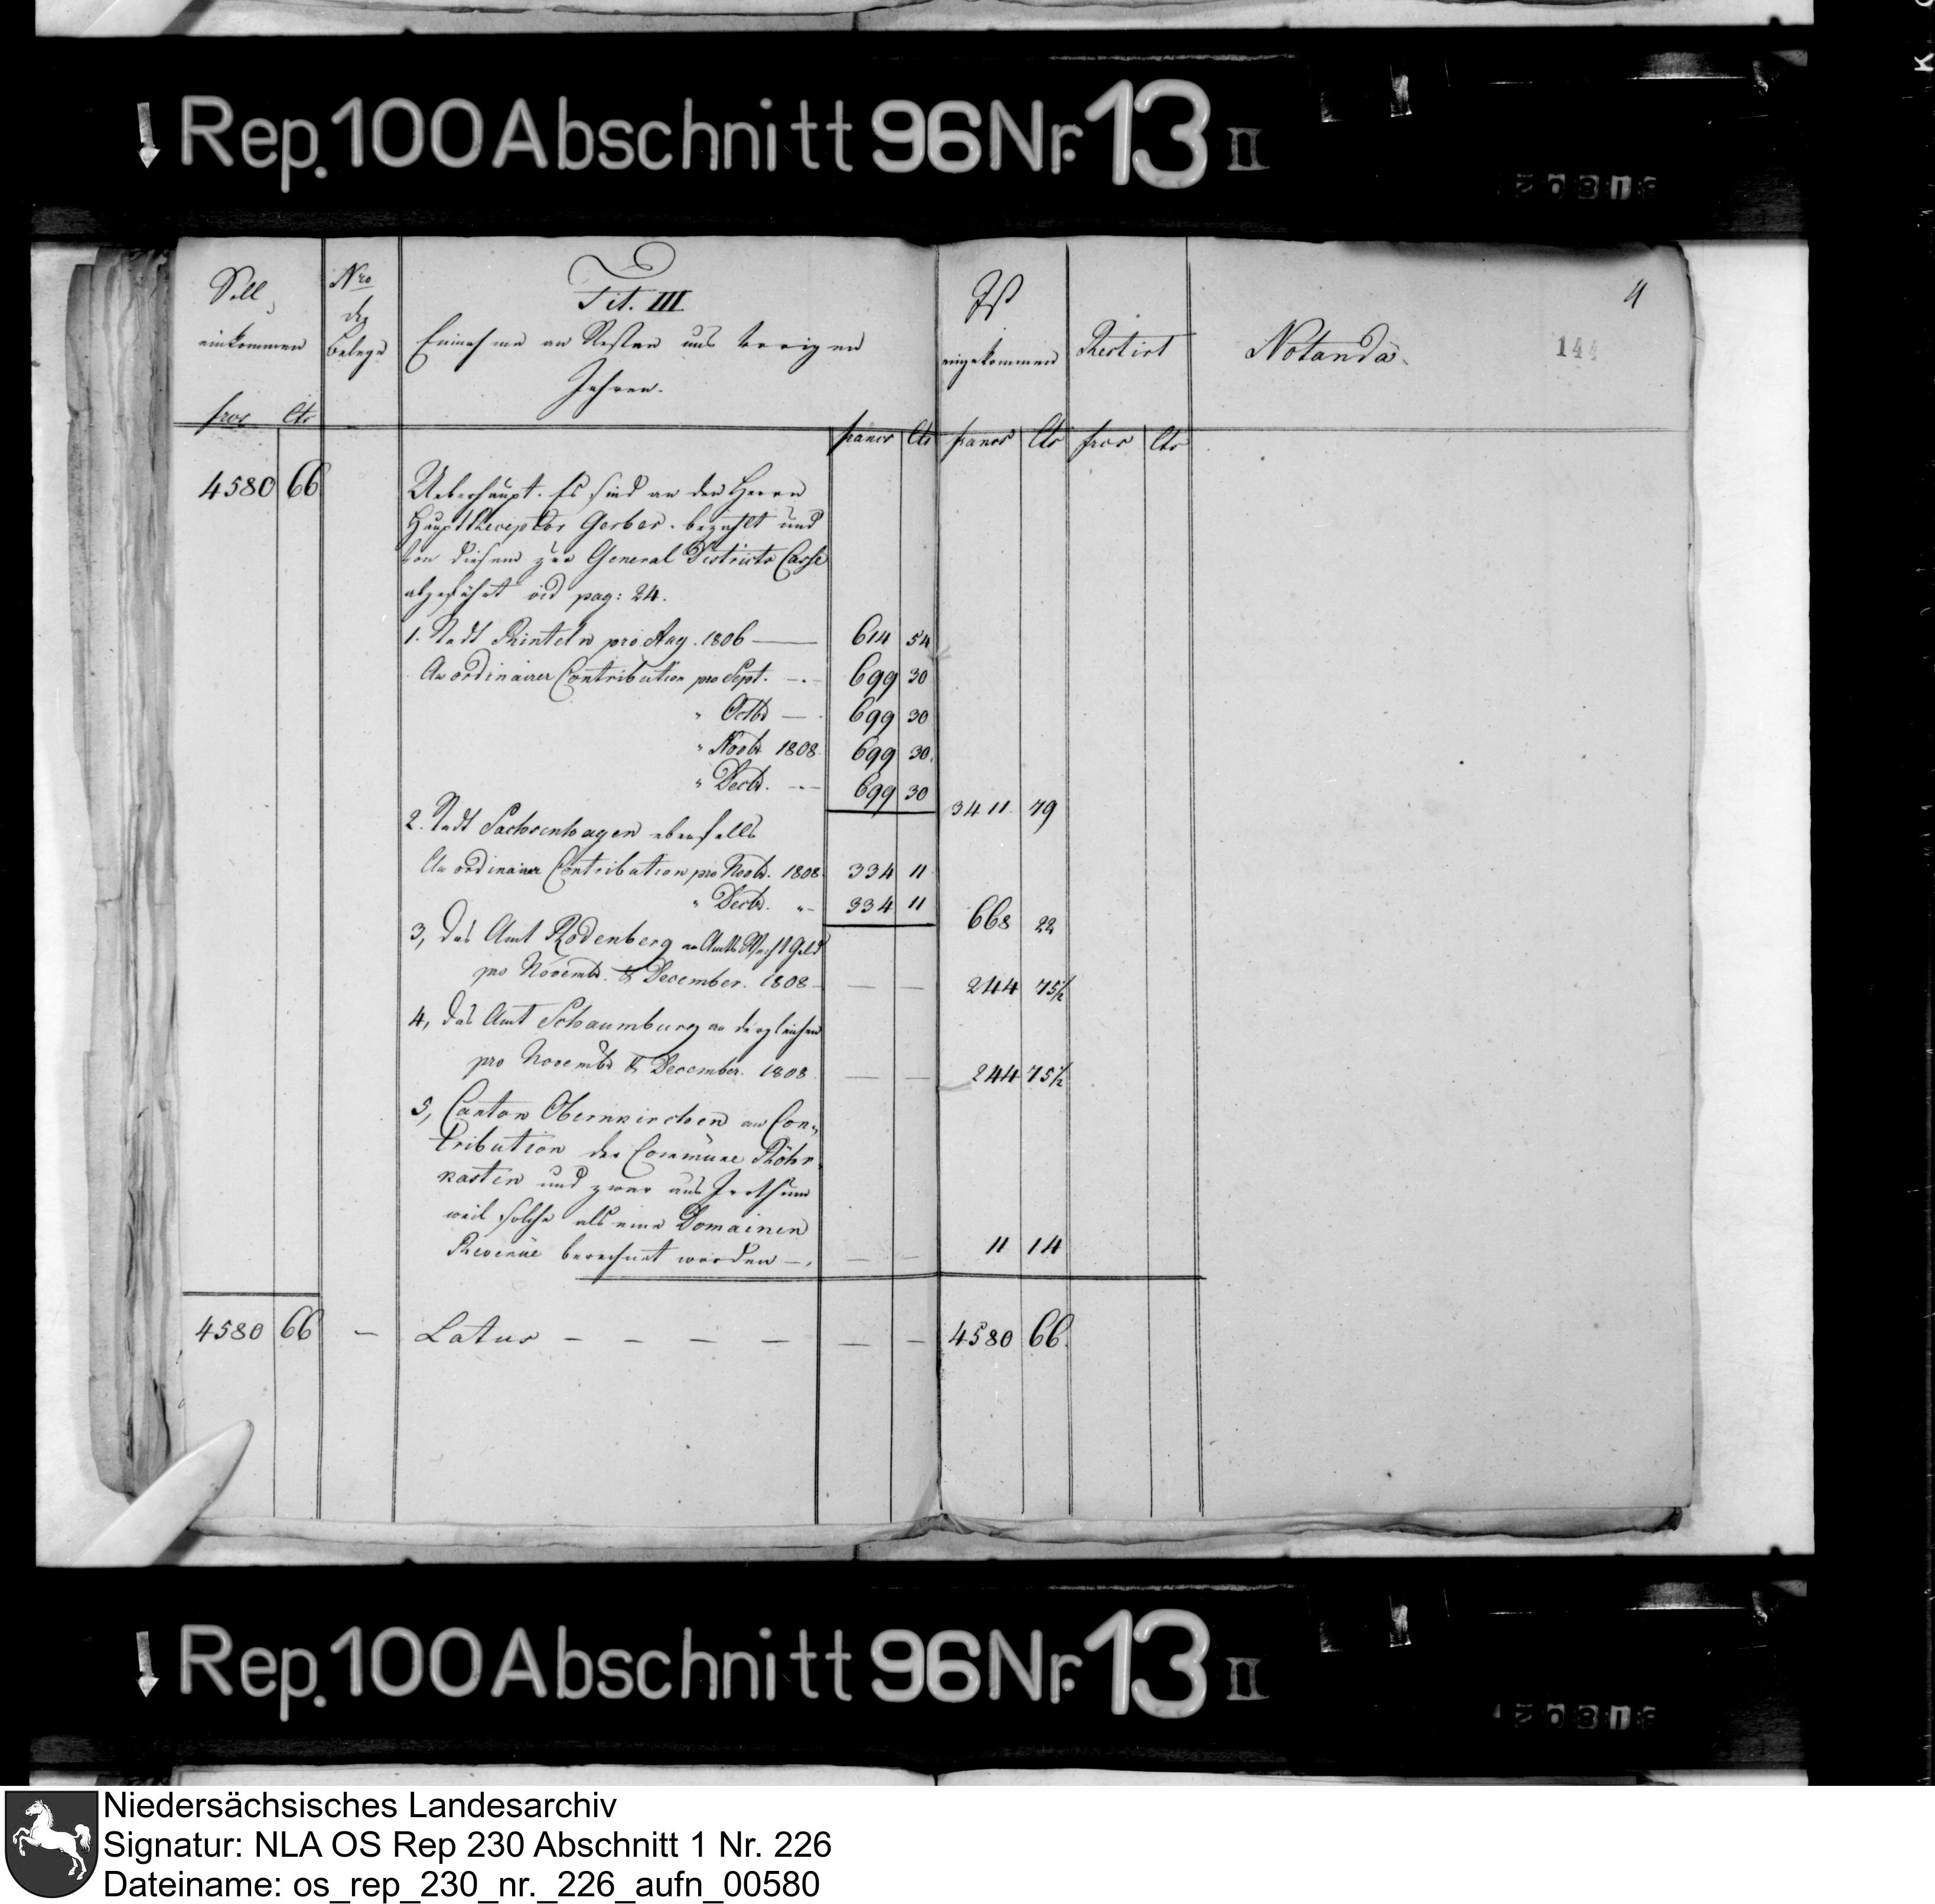 Rep. 100 Abschnitt 96 Nr. 13 II
Soll
einkommen
frcs cts
Nro
der
Belege
Tit. III
Einnahme an Resten aus vorigen
Jahren.
francs Cts
Ist
eingekommen
francs Cts
Restirt
frcs Cts
Notanda
4
144
4580 66 Ueberhaupt. Es sind an den Herrn
Haupt Receptor Gerber bezahlt und
von diesem zur General Districts Casse
abgeführt vid pag: 24.
1. Stadt Rinteln pro Aug. 1806 — 614 54
An ordinairer Contribution pro Sept. —.— 699 30
" Octbr — 699 30
" Novbr 1808 699 30
" Decbr. —.— 699 30
3411 79
2. Stadt Sachsenhagen ebenfalls
An ordinairer Contribution pro Novbr. 1808 334 11
" Decbr. "— 334 11
668 22
3, das Amt Rodenberg an Amts Wacht Geld
pro Novembr. & December. 1808 — — — 244 75½
4, das Amt Schaumburg an dergleichen
pro Novembr & December. 1808 — — 244 75½
5, Canton Obernkirchen an Con-
tribution der Commüne Röhr-
kasten und zwar aus Irrthum
weil solche als eine Domainen
Revenüe berechnet worden — — — 11 14
4580 66 — Latus — — — — — — 4580 66.
Rep. 100 Abschnitt 96 Nr. 13 II
Niedersächsisches Landesarchiv
Signatur: NLA OS Rep 230 Abschnitt 1 Nr. 226
Dateiname: os_rep_230_nr._226_aufn_00580